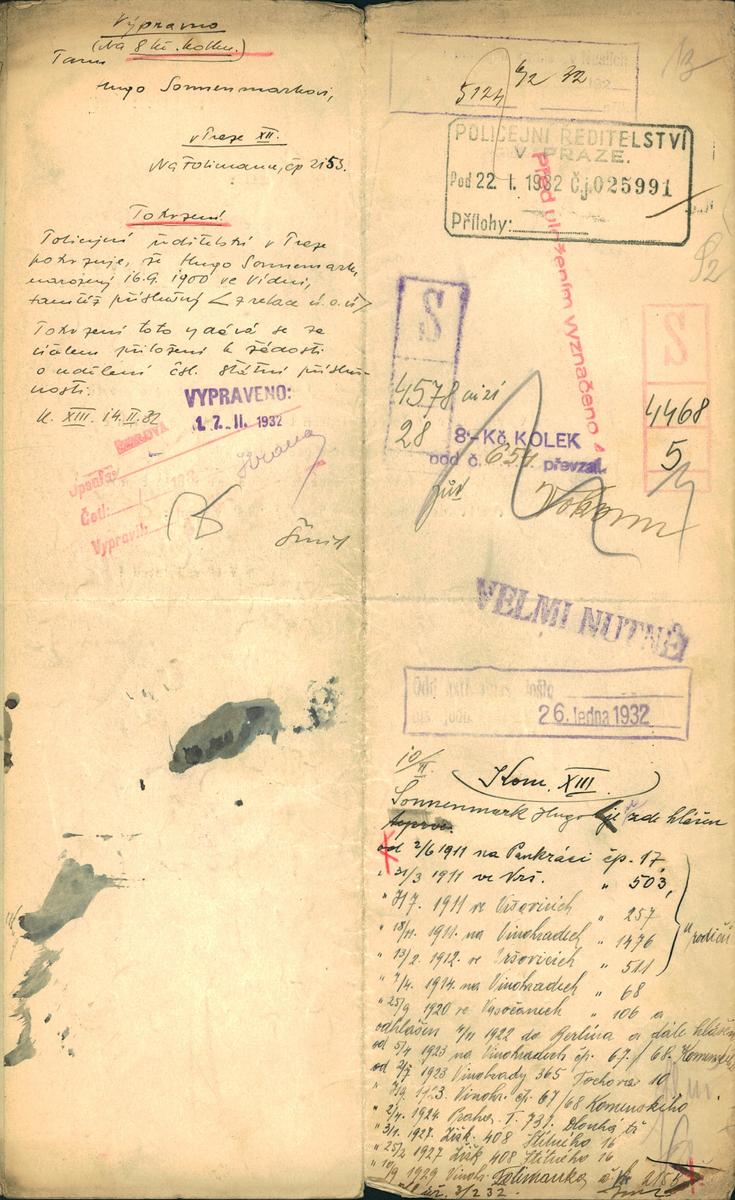 Výpravno
(Na 8 Kč. kolku.)
Panu
Hugo Sonnenmarkovi,
v Praze XII.
Na Folimance, čp 2153.
Potvrzení
Policejní ředitelství v Praze
potvrzuje, že Hugo Sonnenmark,
narozený 16.9. 1900 ve Vídni,
tamtéž příslušný
Potvrzení toto vydává se za
účelem přiložení k žádosti
o udělení čsl. státní příslušnosti.
K. XIII. 14.II.32
VYPRAVENO:
17. II. 1932
Opsala:
Četl:
Vypravil:
5124
POLICEJNÍ ŘEDITELSTVÍ
V PRAZE.
Pod 22. I. 1932 Č.j. 025991
Přílohy:
před uložením vyznačeno!
S
4578
28
S
4468
5
8-Kč KOLEK
pod č. 651 převzal.
VELMI NUTNÉ
26. ledna 1932
10/II
Kom. XIII
Sonnenmark Hugo je zde hlášen
od 2/6 1911 na Pankráci čp. 17,
" 21/3 1911 ve Vrš. " 503,
" 7/7. 1911 ve Vršovicích " 257
" 18/11. 1911. na Vinohradech " 1476
" 13/2. 1912. ve Vršovicích " 511
" rodičů
" 7/4. 1914. na Vinohradech " 68
" 25/9 1920 ve Vysočanech " 106 a
odhlášen 4/11 1922 do Berlína a dále hlášen
od 5/4 1923 na Vinohradech čp. 67/68. Komenského
od 2/7 1923 Vinohrady 365 Fochova 10
1923. Vinohr. čp. 67/68 Komenského
" 2/4. 1924. Praha I. 731. Dlouhá tř
" 3/1. 1927. Žižk. 408 Štítného 16
" 25/2 1927 Žižk 408 Štítného 16
" 10/9 1929 Vinoh. Folimanka 2153